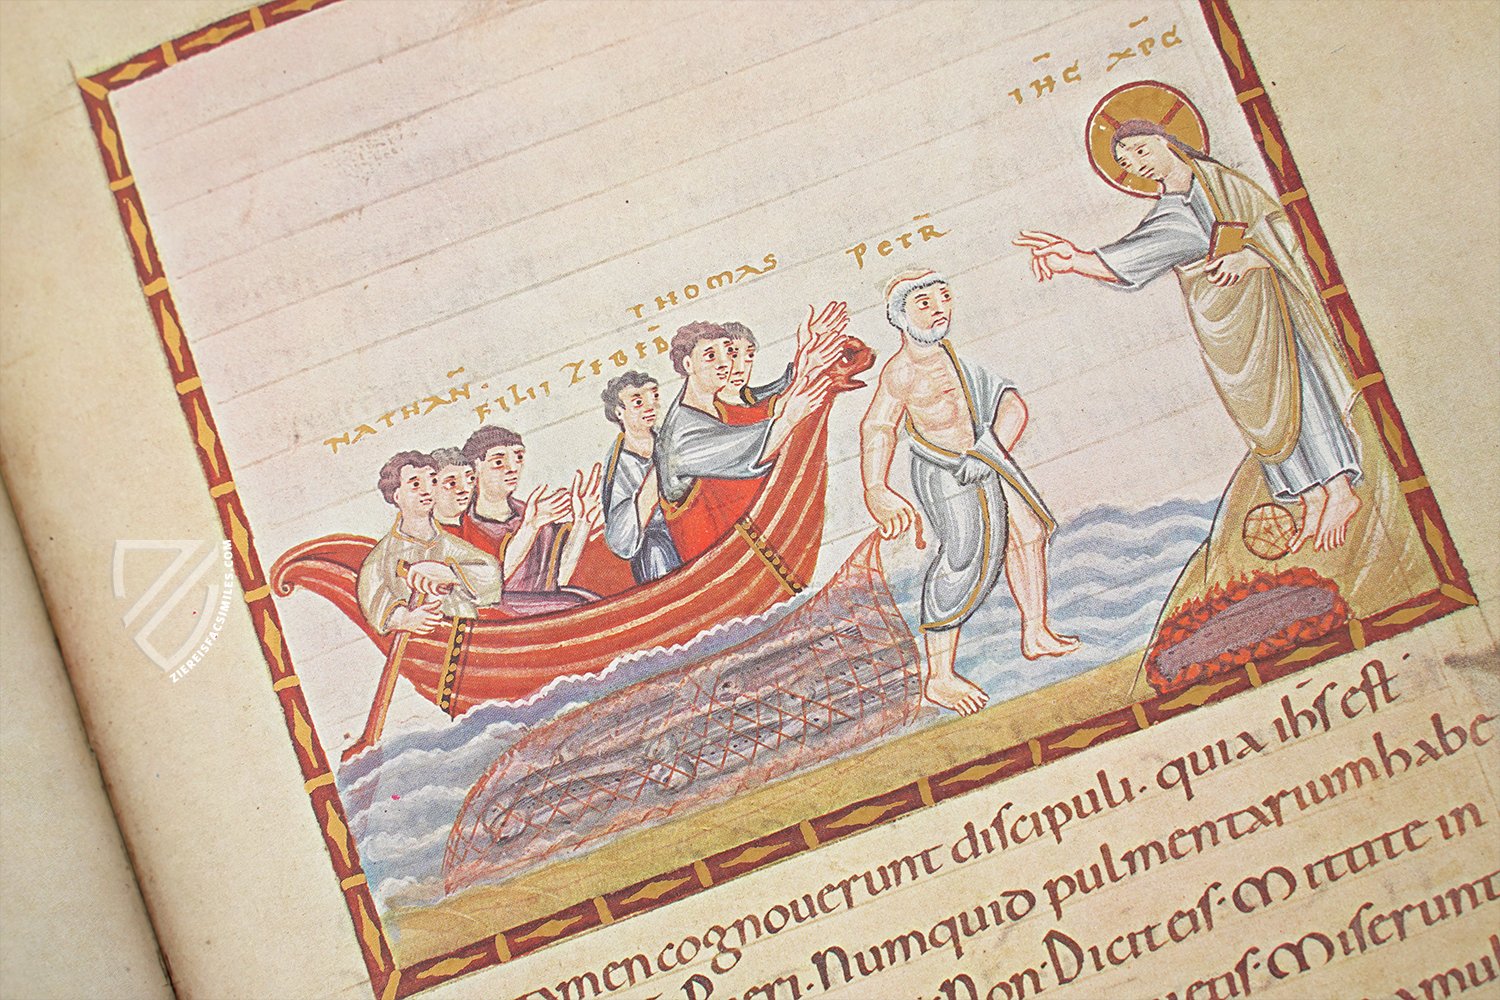 IHC XPC
PETR
THOMAS
NATHAN· FILII ZEBED
ZIEREISFACSIMILES.COM
tamen cognouerunt discipuli. quia ihs est.
Pueri. Numquid pulmentarium habe
Non. Dicit eis. Mittite in
uetis. Miserunt